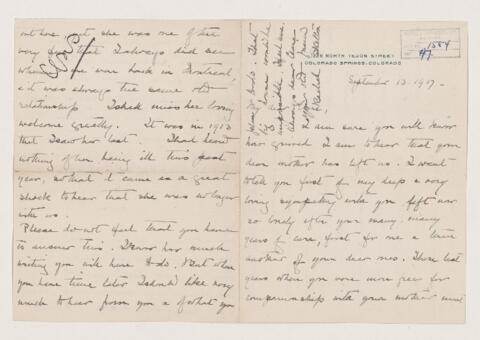 NORTH TEJON STREET
COLORADO SPRINGS, COLORADO
September 13. 1917.
I am sure you will know
how grieved I am to hear that your
dear mother has left us. I want
to tell you first of my deep & very
loving sympathy with you left now
so lonely after your many, many
years of care, first for one & then
another of your dear ones. These last
years when you were more free for
companionship with your mother must
out here, but she was one of the
very few that I always did see
when I was back in Montreal,
& it was always the same old
relationship. I shall miss her loving
welcome greatly. It was in 1913
that I saw her last. I had heard
nothing of her being ill this past
year, so that it came as a great
shock to hear that she was no longer
with us.
Please do not feel that you have
to answer this. I know how much
writing you will have to do. But when
you have time later I should like very
much to hear from you & of what you